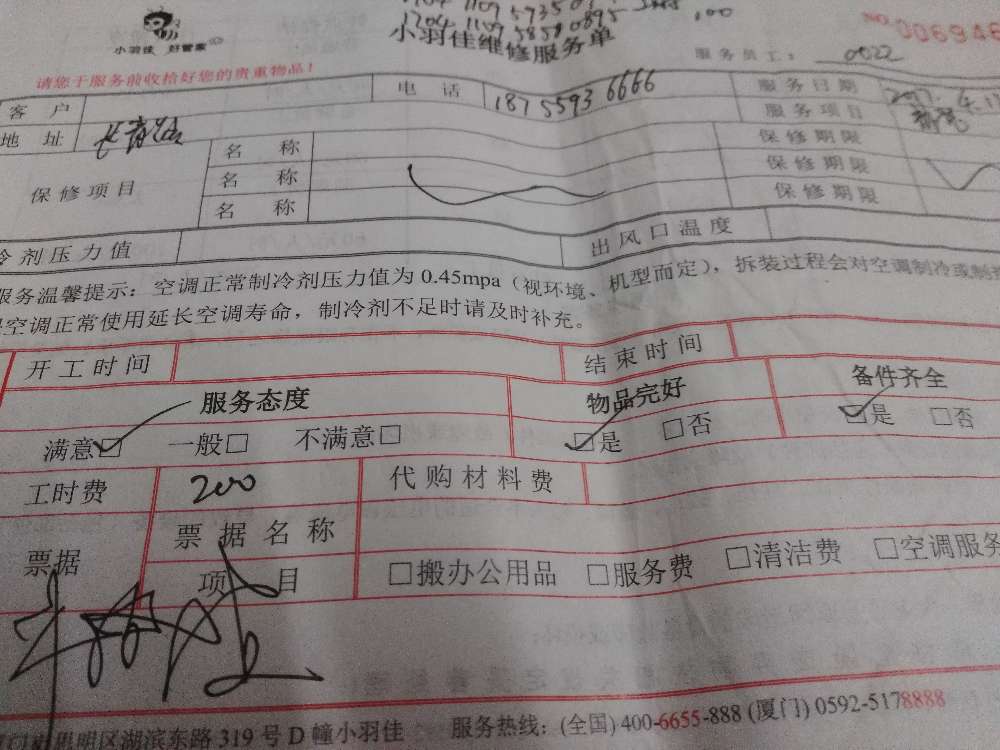 小羽佳 好管家
小羽佳维修服务单
NO. 006946
服务员工: 0022
请您于服务前收拾好您的贵重物品!
客 户 电 话 18755936666 服务日期 2017.4.11
地 址 服务项目
保修项目 名 称 保修期限
名 称 保修期限
名 称 保修期限
冷剂压力值 出风口温度
服务温馨提示: 空调正常制冷剂压力值为 0.45mpa (视环境、机型而定), 拆装过程会对空调制冷或制热
空调正常使用延长空调寿命, 制冷剂不足时请及时补充。
开工时间 结束时间
服务态度 物品完好 备件齐全
满意☑ 一般□ 不满意□ ☑是 □否 ☑是 □否
工时费 200 代购材料费
票据 票据名称
项 目 □搬办公用品 □服务费 □清洁费 □空调服务
思明区湖滨东路 319 号 D 幢小羽佳 服务热线: (全国) 400-6655-888 (厦门) 0592-5178888